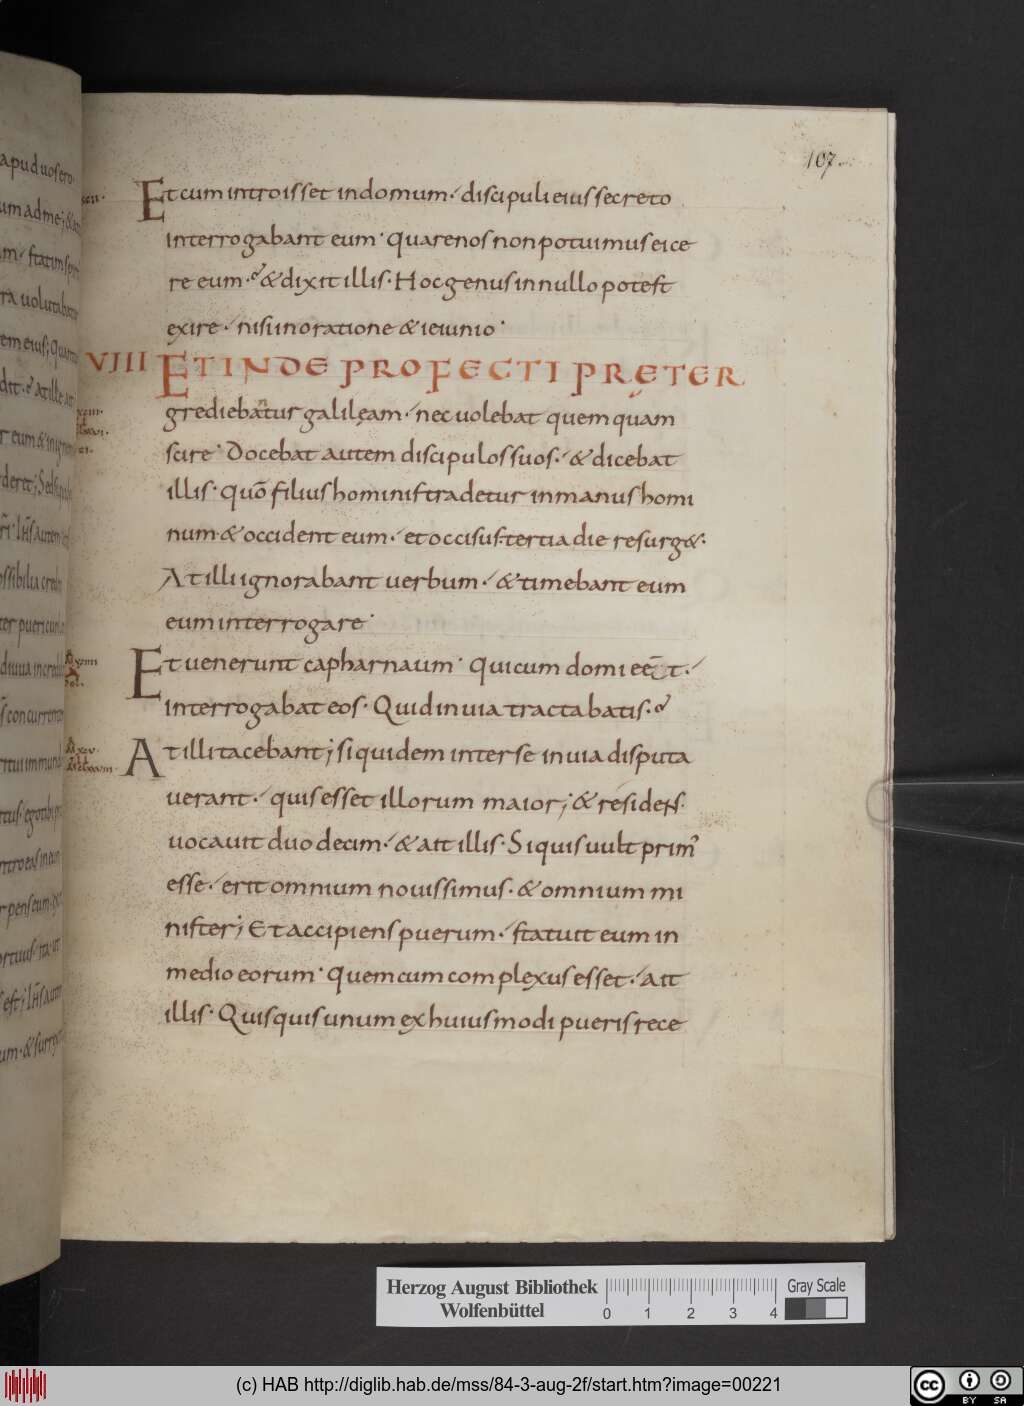 107.
Et cum introisset in domum· discipuli eius secreto
interrogabant eum· Quare nos non potuimus eice
re eum· & dixit illis· Hoc genus in nullo potest
exire· nisi in oratione & ieiunio·
VIII ET INDE PROFECTI PRĘTER
grediebantur galileam· nec uolebat quemquam
scire· Docebat autem discipulos suos· & dicebat
illis· Quō filius hominis tradetur in manus homi
num· & occident eum· et occisus· tertia die resurg&·
At illi ignorabant uerbum· & timebant eum
eum interrogare·
Et uenerunt capharnaum· Qui cum domi eēt·
interrogabat eos· Quid in uia tractabatis·
At illi tacebant; siquidem inter se in uia disputa
uerant· quis esset illorum maior; & residens·
uocauit duodecim· & ait illis· Si quis uult prim
esse· erit omnium nouissimus· & omnium mi
nister; Et accipiens puerum· statuit eum in
medio eorum· Quem cum complexus esset· ait
illis· Quisquis unum ex huiusmodi pueris rece
Herzog August Bibliothek
Wolfenbüttel
0 1 2 3 4
Gray Scale
(c) HAB http://diglib.hab.de/mss/84-3-aug-2f/start.htm?image=00221
cc BY SA